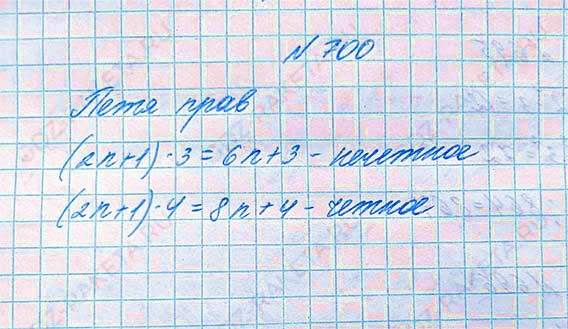 N 700
Петя прав
(2n+1)·3 = 6n+3 - нечетное
(2n+1)·4 = 8n+4 - четное